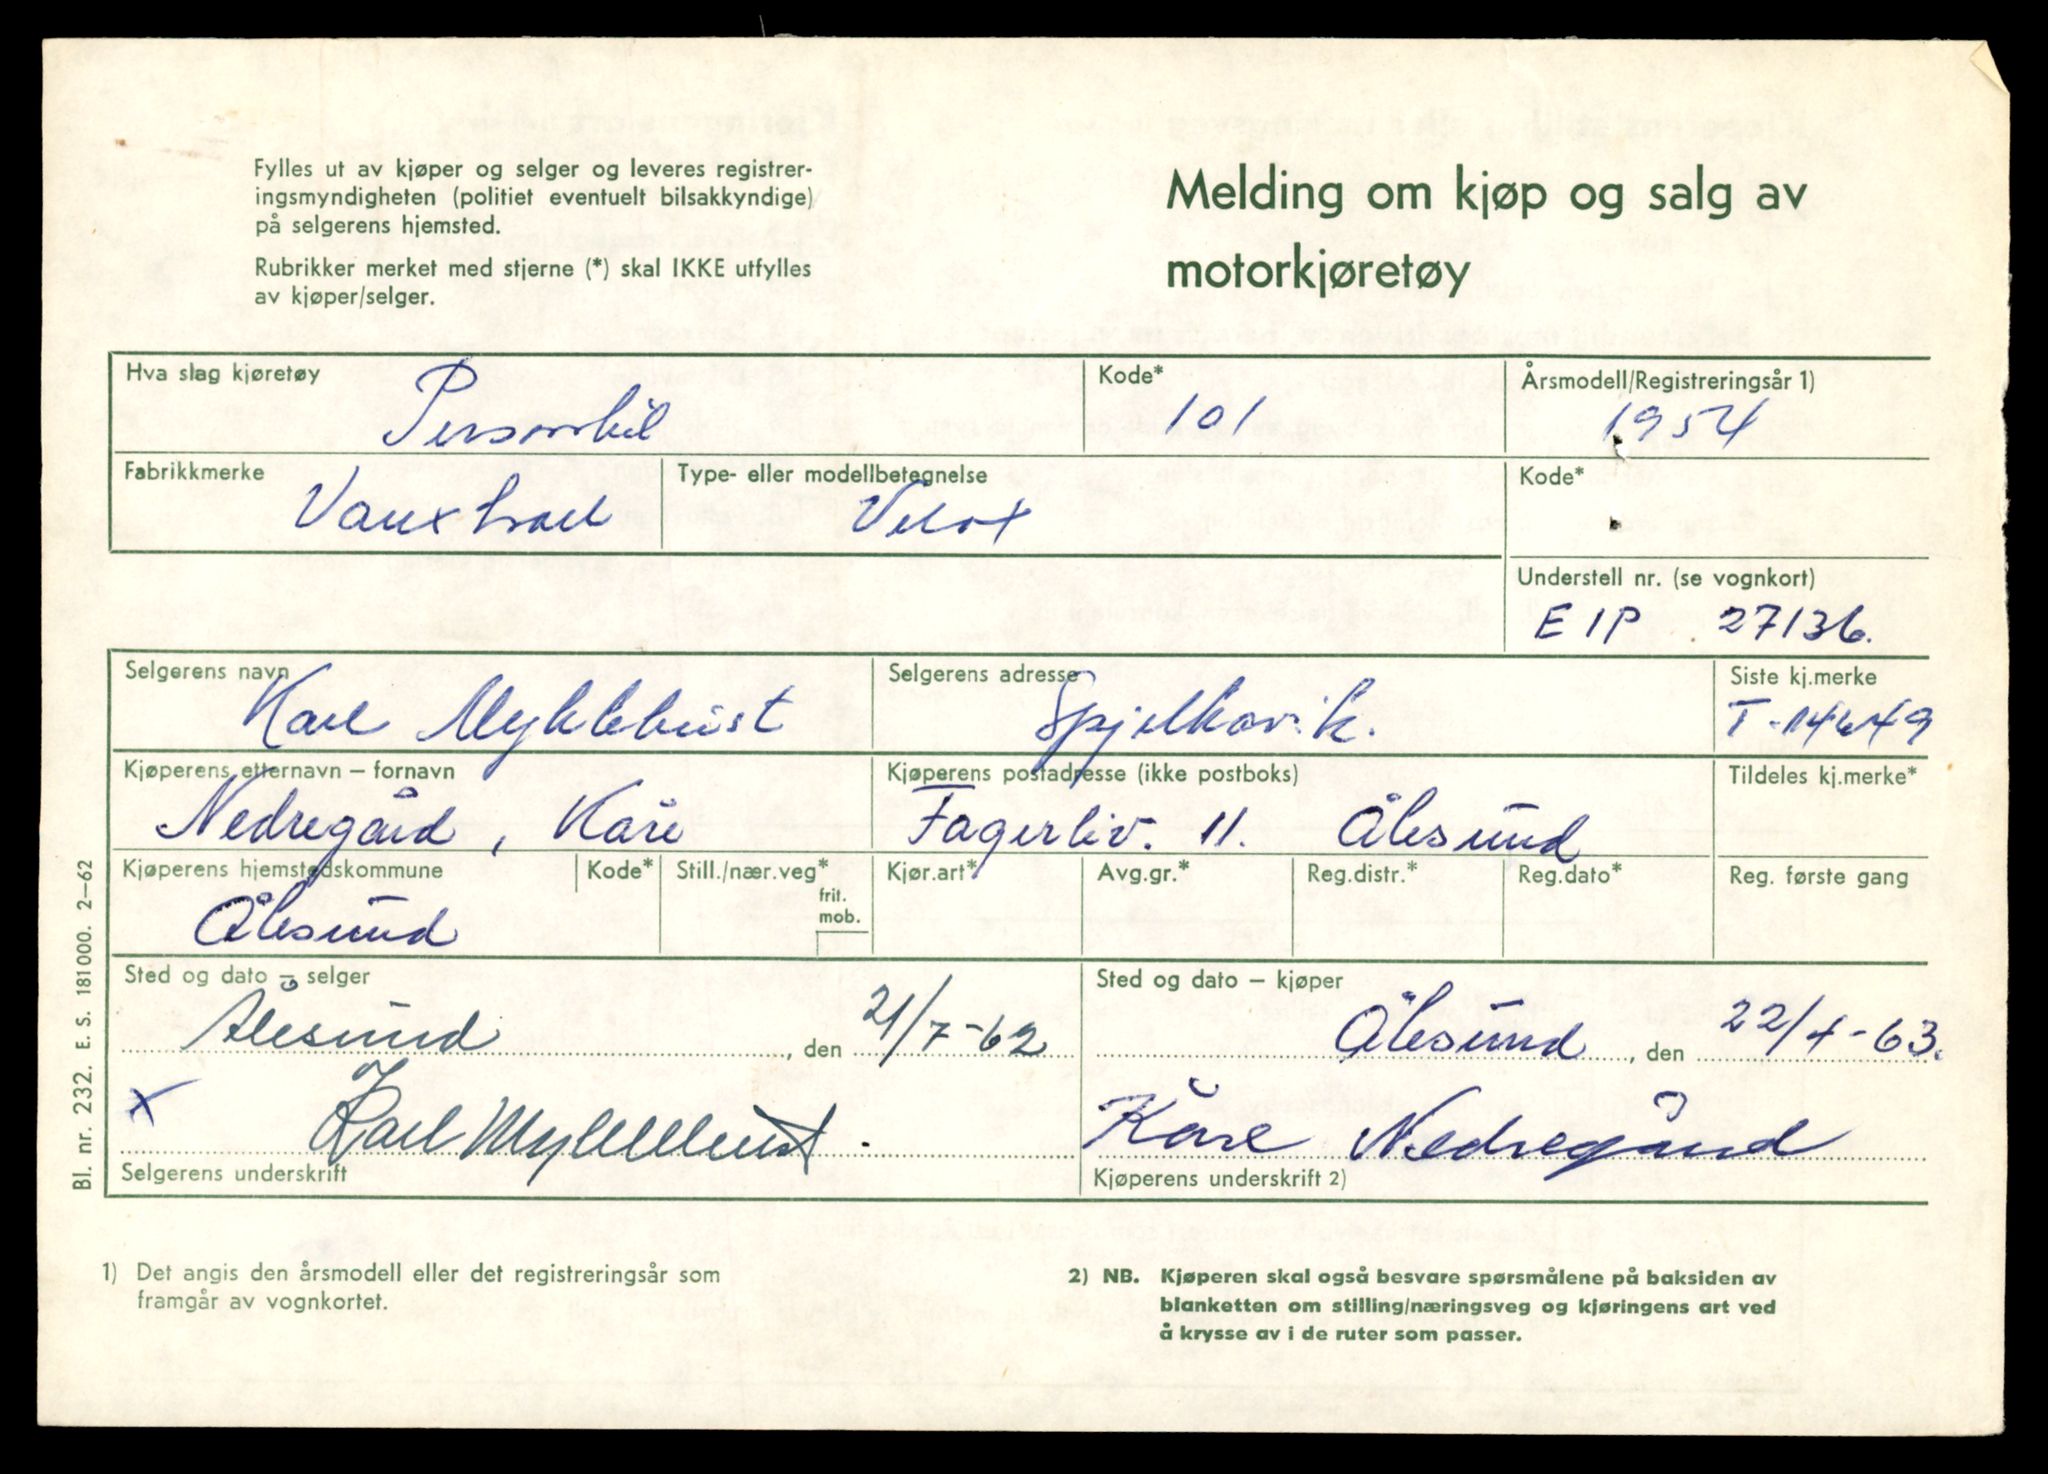 Fylles ut av kjøper og selger og leveres registrer-
ingsmyndigheten (politiet eventuelt bilsakkyndige)
på selgerens hjemsted.
Rubrikker merket med stjerne (*) skal IKKE utfylles
av kjøper/selger.
Melding om kjøp og salg av
motorkjøretøy
Hva slag kjøretøy
Personbil
Kode*
101
Årsmodell/Registreringsår 1)
1954
Fabrikkmerke
Vauxhall
Type- eller modellbetegnelse
Velox
Kode*
Understell nr. (se vognkort)
EIP 27136.
Selgerens navn
Karl Myklebust
Selgerens adresse
Spjelkavik.
Siste kj.merke
T-14649
Kjøperens etternavn – fornavn
Nedregård, Kåre
Kjøperens postadresse (ikke postboks)
Fagerliv. 11. Ålesund
Tildeles kj.merke*
Kjøperens hjemstedskommune
Ålesund
Kode*
Still./nær.veg*
frit.
mob.
Kjør.art*
Avg.gr.*
Reg.distr.*
Reg.dato*
Reg. første gang
Sted og dato – selger
Ålesund, den 21/7-62
Sted og dato – kjøper
Ålesund, den 22/4-63.
x Karl Myklebust.
Selgerens underskrift
Kåre Nedregård
Kjøperens underskrift 2)
Bl. nr. 232. E. S. 181000. 2–62
1) Det angis den årsmodell eller det registreringsår som
framgår av vognkortet.
2) NB. Kjøperen skal også besvare spørsmålene på baksiden av
blanketten om stilling/næringsveg og kjøringens art ved
å krysse av i de ruter som passer.